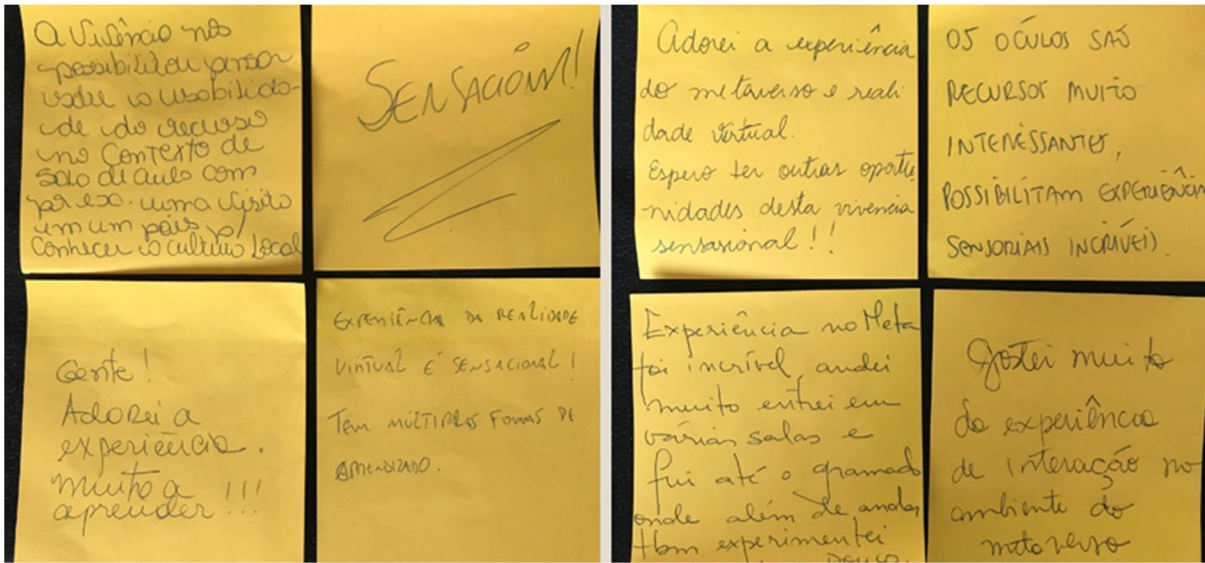 A Vivência nos
possibilitou pensar
sobre a usabilida-
de do recurso
no contexto de
sala de aula com
por ex. uma visita
em um país p/
conhecer a cultura local
SENSACIÓNAL!
Gente!
Adorei a
experiência.
muito a
aprender!!!
EXPERIÊNCIA DA REALIDADE
VIRTUAL É SENSACIONAL!
TEM MÚLTIPLAS FORMAS DE
APRENDIZADO.
Adorei a experiência
do metaverso e reali
dade virtual.
Espero ter outras oportu
nidades desta vivencia
sensasional!!
OS OCÚLOS SÃO
RECURSOS MUITO
INTERESSANTES,
POSSIBILITAM EXPERIÊNCIA
SENSORIAIS INCRÍVEIS.
Experiência no Meta
foi incrível, andei
muito entrei em
várias salas e
fui até o gramado
onde além de andar
tbm experimentei
pouco
Gostei muito
da experiência
de interação no
ambiente do
metaverso